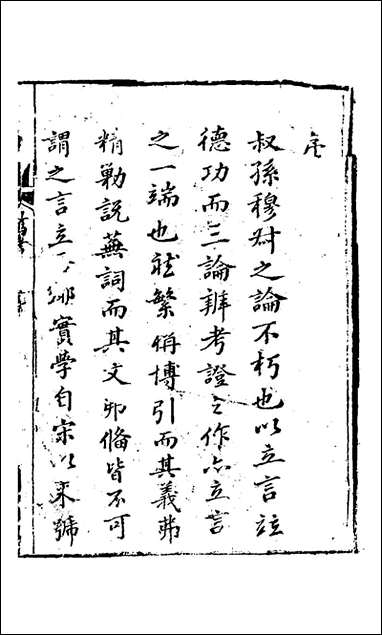 序
叔孫穆叔之論不朽也以立言竝
德功而三論辨考證之作亦立言
之一端也然繁稱博引而其義弗
精勦說蕪詞而其文卯脩皆不可
謂之言立子鄉實學自宋以來號